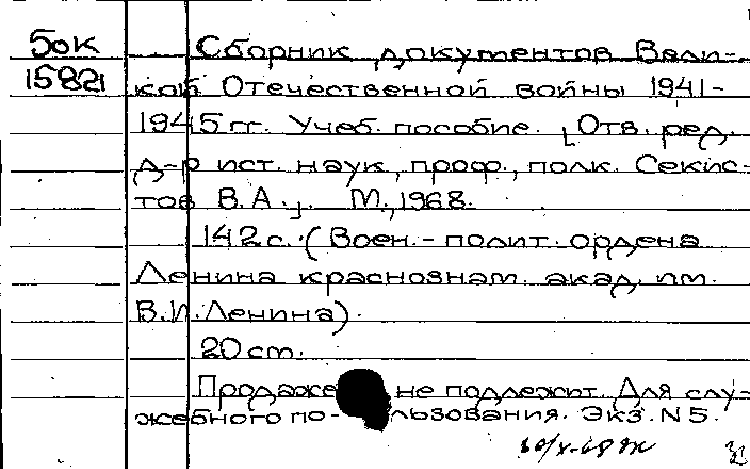 5ок
15821
Сборник документов Вели-
кой Отечественной войны 1941-
1945 гг. Учеб. пособие. [Отв. ред.
д-р ист. наук, проф., полк. Секис-
тов В.А.]. М., 1968.
142 с. (Воен.-полит. ордена
Ленина краснознам. акад. им.
В.И. Ленина).
20 cm.
Продаже не подлежит. Для слу-
жебного по- льзования. Экз. N 5.